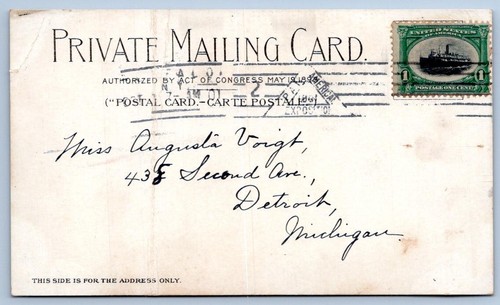 PRIVATE MAILING CARD.
AUTHORIZED BY ACT OF CONGRESS MAY 19, 1898
("POSTAL CARD.-CARTE POSTALE")
2
EXPOSITION
UNITED STATES
OF AMERICA
1 1
POSTAGE ONE CENT
Miss Augusta Voigt,
435 Second Ave.,
Detroit,
Michigan
THIS SIDE IS FOR THE ADDRESS ONLY.